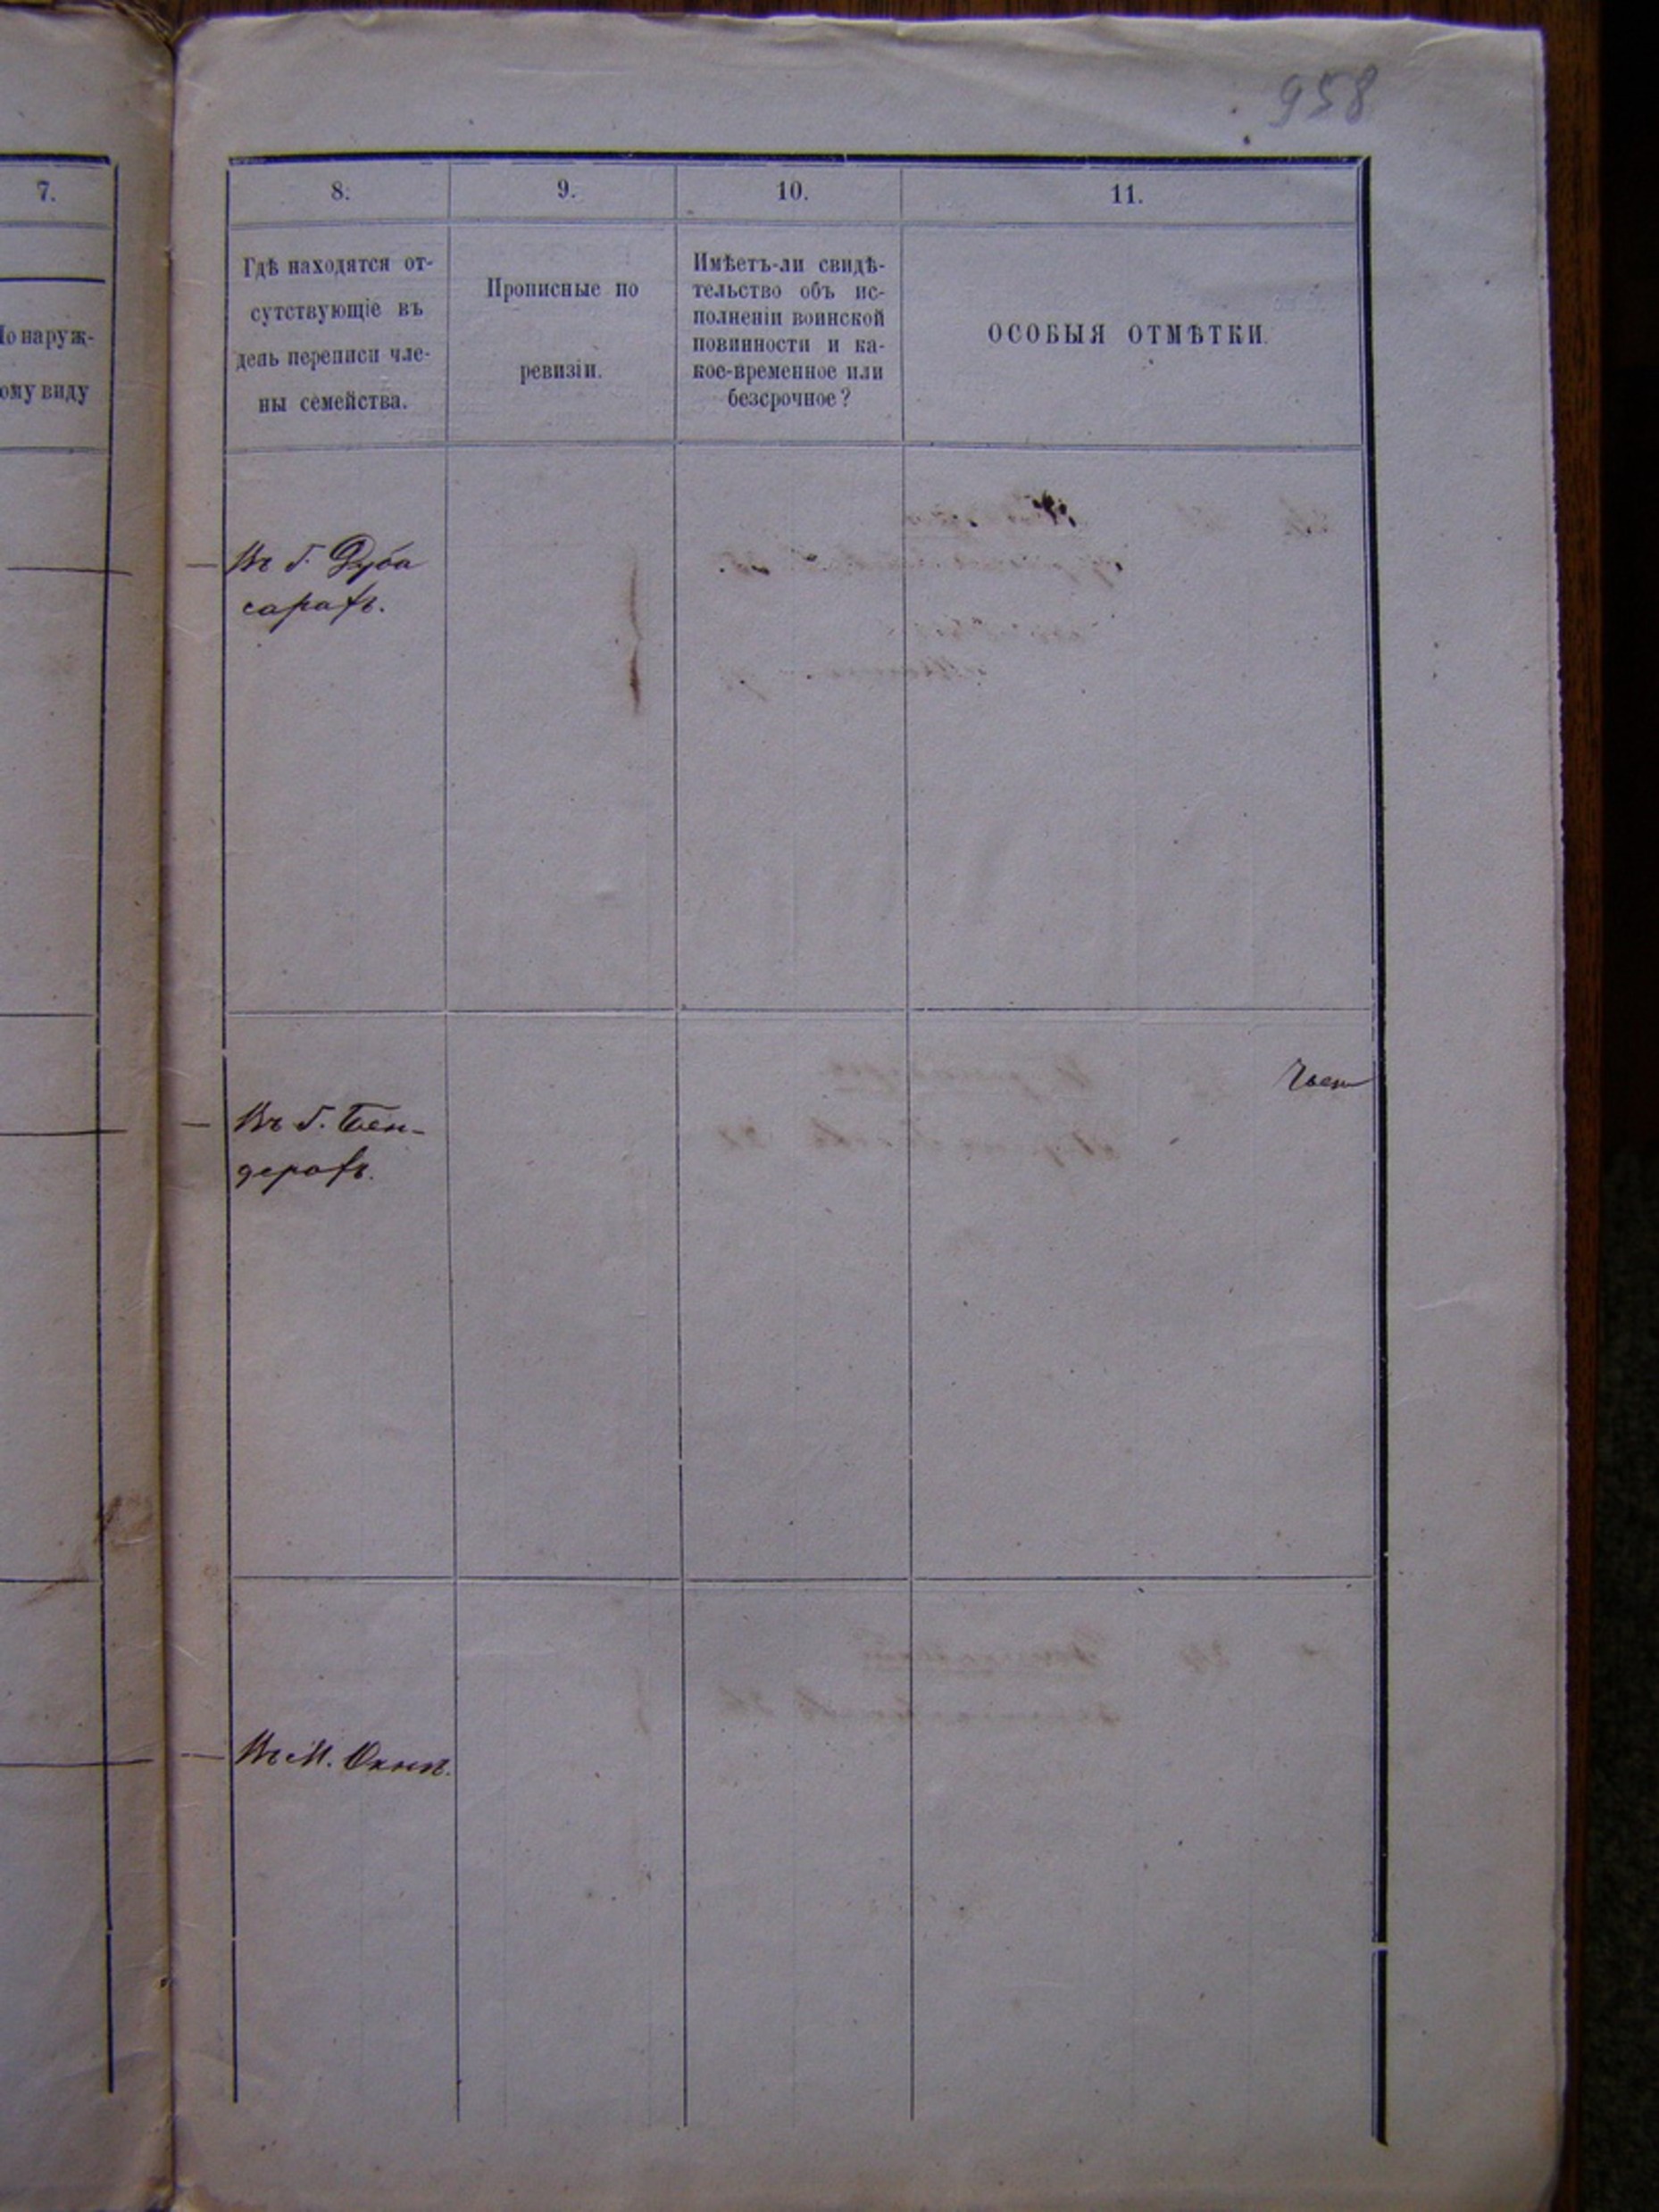 958
7.
8.
9.
10.
11.
По наруж-
ому виду
Гдѣ находятся от-
сутствующіе въ
день переписи чле-
ны семейства.
Прописные по
ревизіи.
Имѣетъ-ли свидѣ-
тельство объ ис-
полненіи воинской
повинности и ка-
кое-временное или
безсрочное?
ОСОБЫЯ ОТМѢТКИ.
Въ г. Дуба
сарахъ.
Въ г. Бен-
дерахъ.
Въ м. Окнѣ.